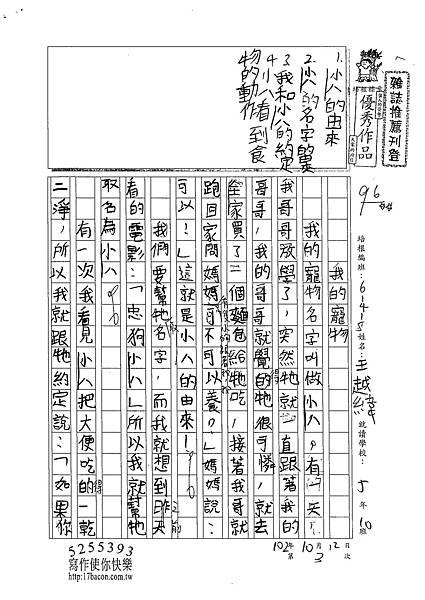 雜誌推薦刊登
優秀作品
1.小八的由來
2.小八的名字的
3.我和小八的約定
4.小八看到食
物的動作
96
培權編班:61418 姓名:王越 就讀學校: 5年10班
102年 第10月3 12日次
我的寵物
我的寵物名字叫做小八。有一天
我哥哥放學了,突然牠就一直跟著我的
哥哥,我的哥哥就覺得牠很可憐,就去
全家買了二個麵包給牠吃,接著我哥就
跑回家問媽媽可不可以養。」媽媽說:
可以!」這就是小八的由來!
我們要幫牠取名字,而我就想到昨天
看的電影:「忠狗小八」所以我就幫牠
取名為小八。
有一次我看見小八把大便吃的一乾
二淨,所以我就跟牠約定說:「如果你
5255393
寫作使你快樂
http://17bacon.com.tw/